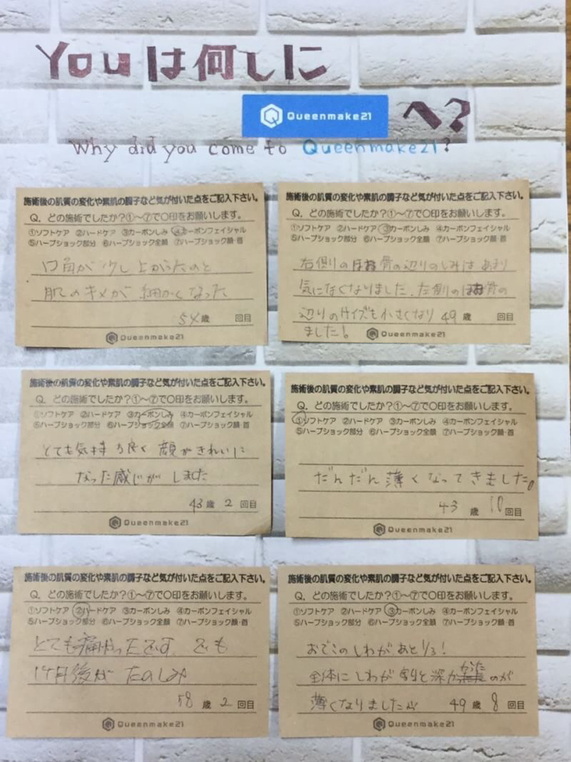 Youは何しに
Queenmake21 へ?
Why did you come to Queenmake21?
施術後の肌質の変化や素肌の調子など気が付いた点をご記入下さい。
Q. どの施術でしたか?①~⑦で〇印をお願いします。
①ソフトケア ②ハードケア ③カーボンしみ ④カーボンフェイシャル
⑤ハーブショック部分 ⑥ハーブショック全顔 ⑦ハーブショック顔・首
口角が少し上がったのと
肌のキメが細かくなった
54歳 回目
Queenmake21
施術後の肌質の変化や素肌の調子など気が付いた点をご記入下さい。
Q. どの施術でしたか?①~⑦で〇印をお願いします。
①ソフトケア ②ハードケア ③カーボンしみ ④カーボンフェイシャル
⑤ハーブショック部分 ⑥ハーブショック全顔 ⑦ハーブショック顔・首
右側のほお骨の辺りのしみはあまり
気にならなくなりました。左側のほお骨の
辺りのサイズも小さくなり 49歳 回目
ました!
Queenmake21
施術後の肌質の変化や素肌の調子など気が付いた点をご記入下さい。
Q. どの施術でしたか?①~⑦で〇印をお願いします。
①ソフトケア ②ハードケア ③カーボンしみ ④カーボンフェイシャル
⑤ハーブショック部分 ⑥ハーブショック全顔 ⑦ハーブショック顔・首
とても気持ち良く 顔がきれいに
なった感じがしました
43歳 2回目
Queenmake21
施術後の肌質の変化や素肌の調子など気が付いた点をご記入下さい。
Q. どの施術でしたか?①~⑦で〇印をお願いします。
①ソフトケア ②ハードケア ③カーボンしみ ④カーボンフェイシャル
⑤ハーブショック部分 ⑥ハーブショック全顔 ⑦ハーブショック顔・首
だんだん薄くなってきました。
43歳 10回目
Queenmake21
施術後の肌質の変化や素肌の調子など気が付いた点をご記入下さい。
Q. どの施術でしたか?①~⑦で〇印をお願いします。
①ソフトケア ②ハードケア ③カーボンしみ ④カーボンフェイシャル
⑤ハーブショック部分 ⑥ハーブショック全顔 ⑦ハーブショック顔・首
とても痛かったです。でも
1ケ月後が たのしみ
58歳 2回目
Queenmake21
施術後の肌質の変化や素肌の調子など気が付いた点をご記入下さい。
Q. どの施術でしたか?①~⑦で〇印をお願いします。
①ソフトケア ②ハードケア ③カーボンしみ ④カーボンフェイシャル
⑤ハーブショック部分 ⑥ハーブショック全顔 ⑦ハーブショック顔・首
おでこのしわがあとりっ!
全体にしわが割と深かったのが
薄くなりました 49歳 8回目
Queenmake21